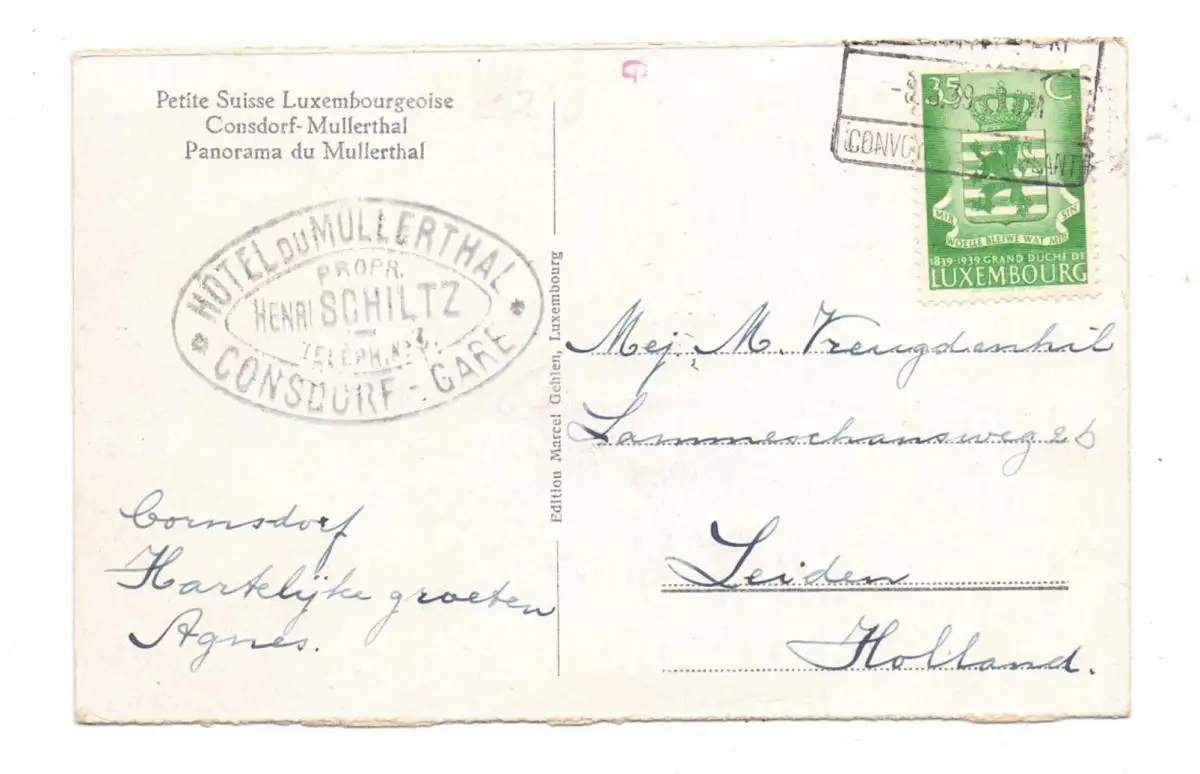 Petite Suisse Luxembourgeoise
Consdorf-Mullerthal
Panorama du Mullerthal
HÔTEL DU MULLERTHAL
PROPR.
HENRI SCHILTZ
TELÉPH. Nº
CONSDORF - GARE
Cornsdorf
Hartelijke groeten
Agnes.
Edition Marcel Gehlen, Luxembourg
G
39
CONVO
35 C
MIR
SIN
WOELLE BLEIWE WAT MIR
1839-1939 GRAND DUCHÉ DE
LUXEMBOURG
Mej. M. Vreugdenhil
Lammeschansweg 26
Leiden
Holland.